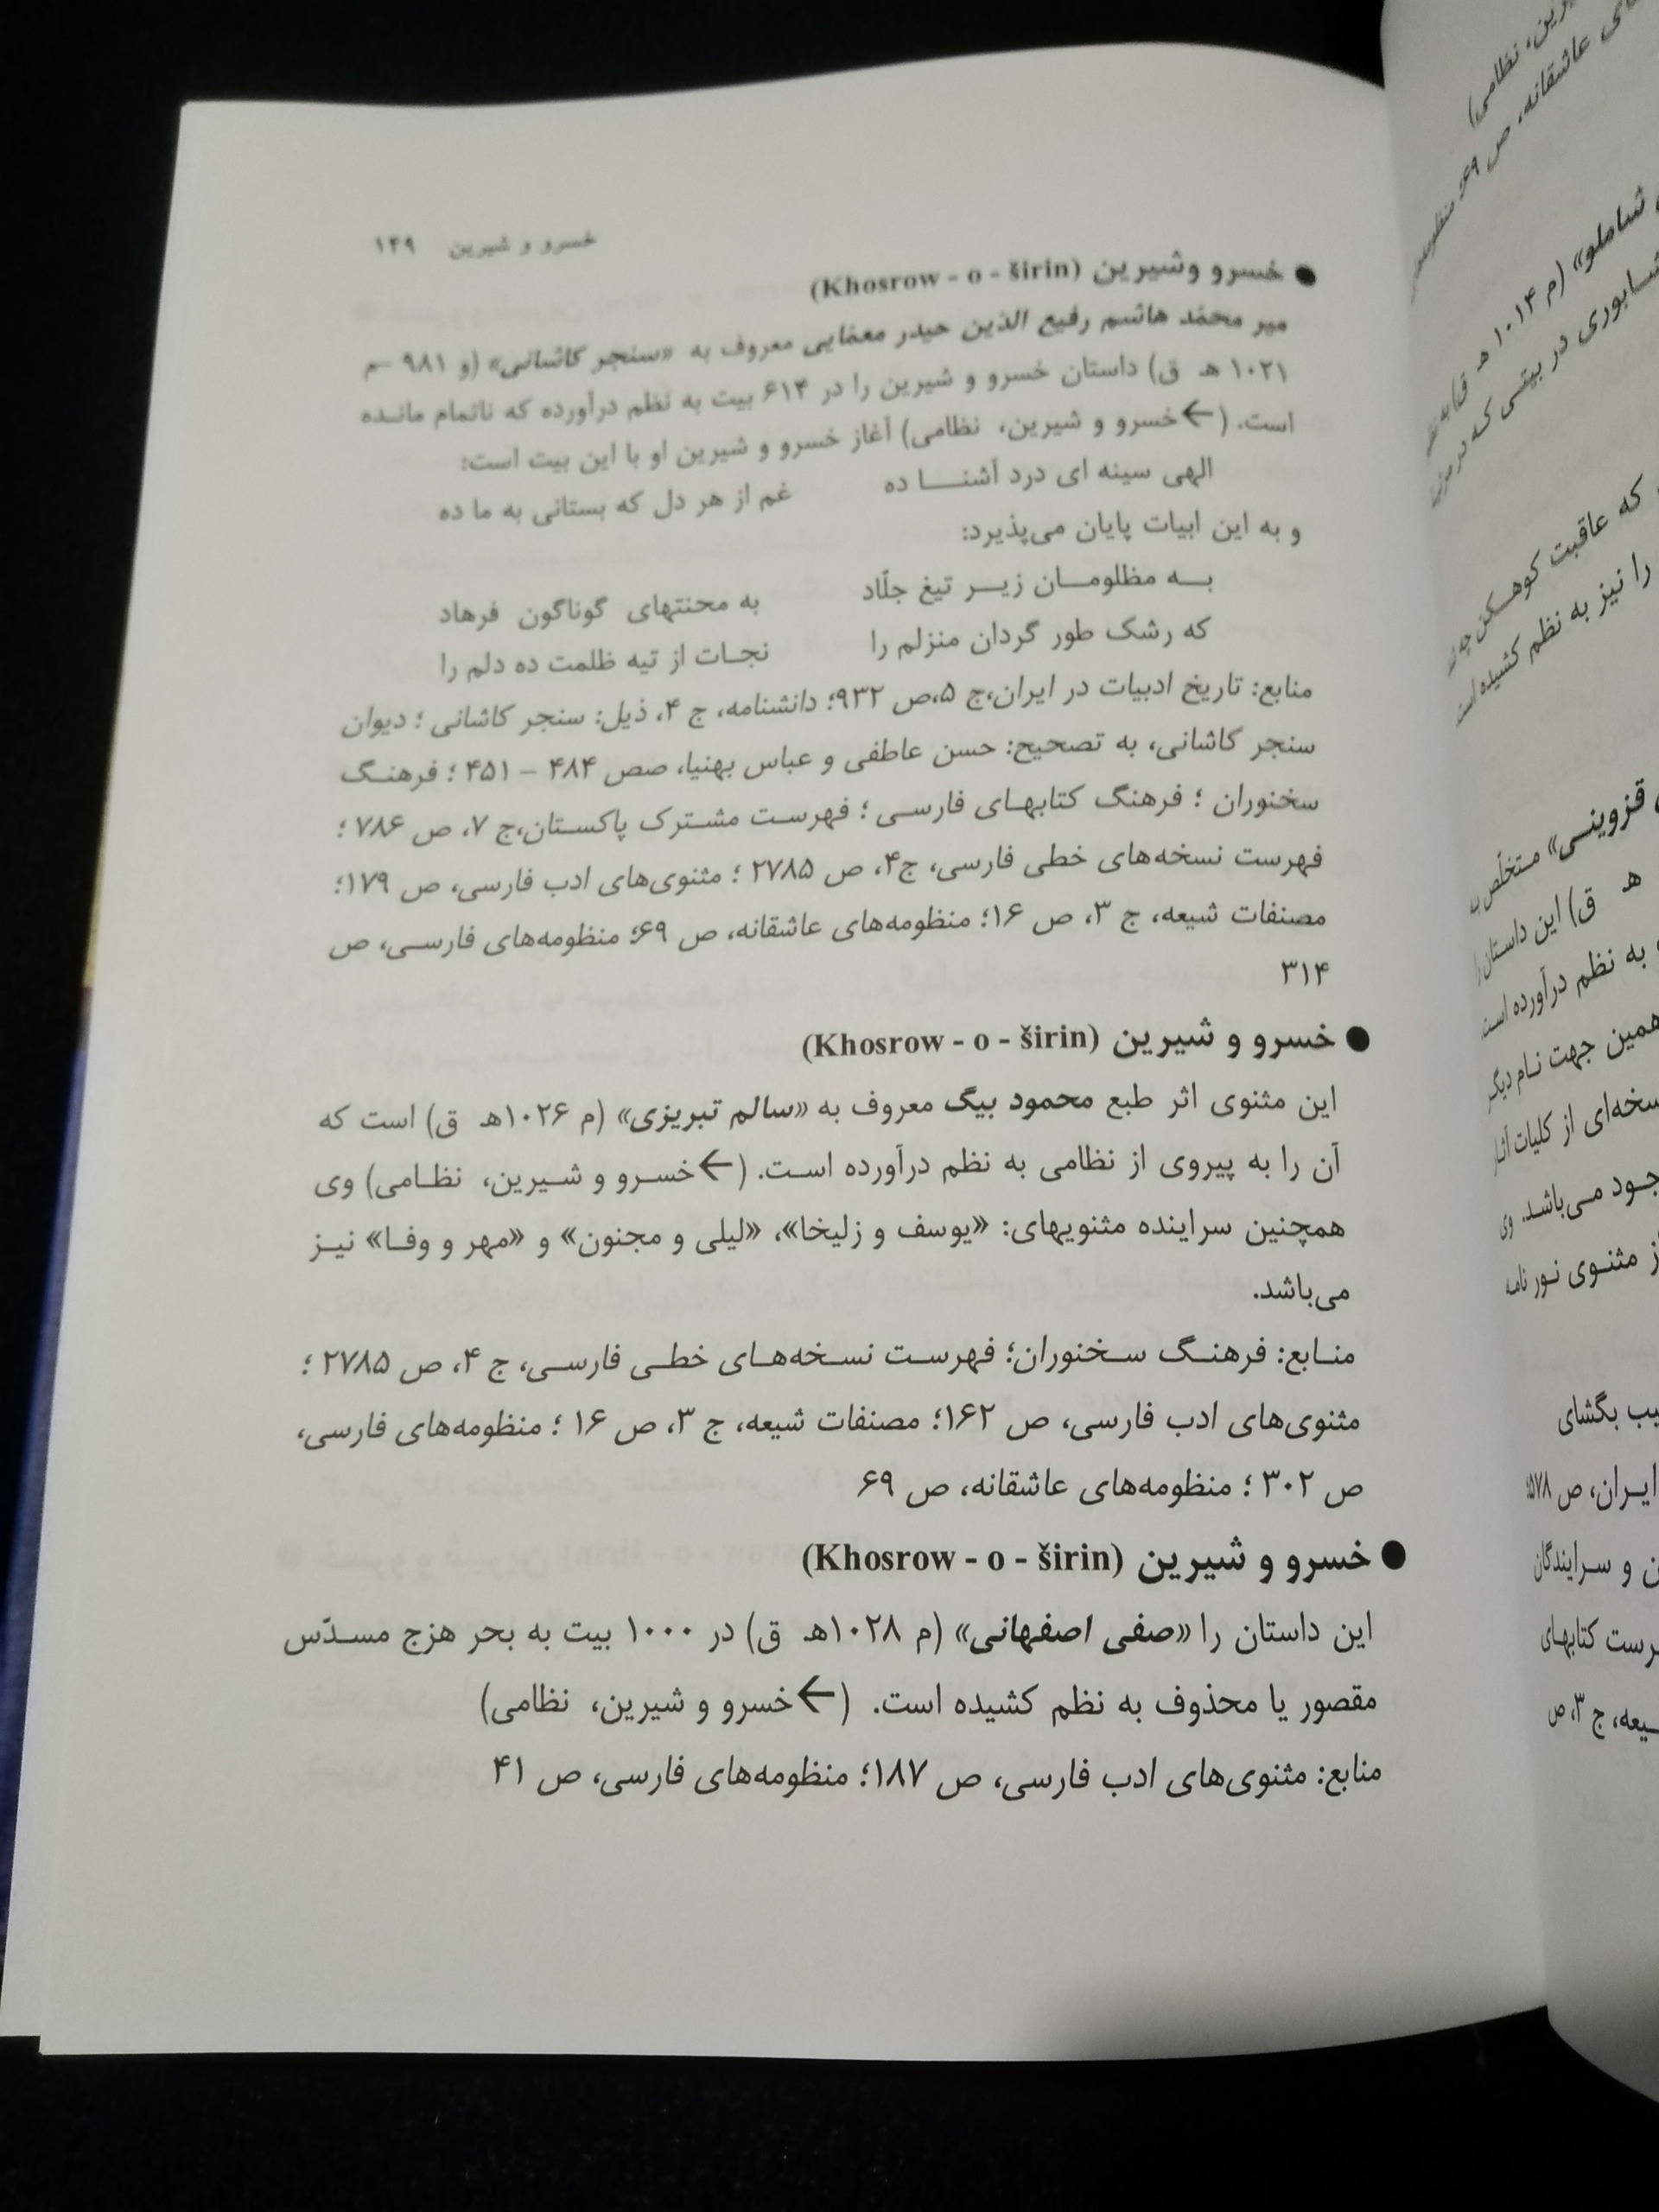 خسرو و شیرین ۱۴۹
● خسرو وشیرین (Khosrow - o - širin)
میر محمّد هاشم رفیع الدین حیدر معمّایی معروف به «سنجر کاشانی» (و ۹۸۱ – م
۱۰۲۱ هـ ق) داستان خسرو و شیرین را در ۶۱۴ بیت به نظم درآورده که ناتمام مانده
است. (←خسرو و شیرین، نظامی) آغاز خسرو و شیرین او با این بیت است:
الهی سینه ای درد آشنا ده غم از هر دل که بستانی به ما ده
و به این ابیات پایان می‌پذیرد:
به مظلومان زیر تیغ جلّاد به محنتهای گوناگون فرهاد
که رشک طور گردان منزلم را نجات از تیه ظلمت ده دلم را
منابع: تاریخ ادبیات در ایران،ج ۵،ص ۹۳۲؛ دانشنامه، ج ۴، ذیل: سنجر کاشانی ؛ دیوان
سنجر کاشانی، به تصحیح: حسن عاطفی و عباس بهنیا، صص ۴۸۴ – ۴۵۱ ؛ فرهنگ
سخنوران ؛ فرهنگ کتابهای فارسی ؛ فهرست مشترک پاکستان،ج ۷، ص ۷۸۶ ؛
فهرست نسخه‌های خطی فارسی، ج۴، ص ۲۷۸۵ ؛ مثنوی‌های ادب فارسی، ص ۱۷۹؛
مصنفات شیعه، ج ۳، ص ۱۶؛ منظومه‌های عاشقانه، ص ۶۹؛ منظومه‌های فارسی، ص
۳۱۴
● خسرو و شیرین (Khosrow - o - širin)
این مثنوی اثر طبع محمود بیگ معروف به «سالم تبریزی» (م ۱۰۲۶هـ ق) است که
آن را به پیروی از نظامی به نظم درآورده است. (←خسرو و شیرین، نظامی) وی
همچنین سراینده مثنویهای: «یوسف و زلیخا»، «لیلی و مجنون» و «مهر و وفا» نیز
می‌باشد.
منابع: فرهنگ سخنوران؛ فهرست نسخه‌های خطی فارسی، ج ۴، ص ۲۷۸۵ ؛
مثنوی‌های ادب فارسی، ص ۱۶۲؛ مصنفات شیعه، ج ۳، ص ۱۶ ؛ منظومه‌های فارسی،
ص ۳۰۲ ؛ منظومه‌های عاشقانه، ص ۶۹
● خسرو و شیرین (Khosrow - o - širin)
این داستان را «صفی اصفهانی» (م ۱۰۲۸هـ ق) در ۱۰۰۰ بیت به بحر هزج مسدّس
مقصور یا محذوف به نظم کشیده است. (←خسرو و شیرین، نظامی)
منابع: مثنوی‌های ادب فارسی، ص ۱۸۷؛ منظومه‌های فارسی، ص ۴۱
نظامی)
عاشقانه، ص ۶۹؛
شاملو» (م ۱۰۱۴ هـ
در بیتی که در
که عاقبت کوهکن
را نیز به نظم کشیده است
قزوینی» متخلّص به
هـ ق) این داستان را
به نظم درآورده است
همین جهت نام دیگر
از کلیات آثار
می‌باشد. وی
مثنوی نور نامه
بگشای
ایران، ص ۵۷۸؛
و سرایندگان
کتابهای
ج ۳، ص